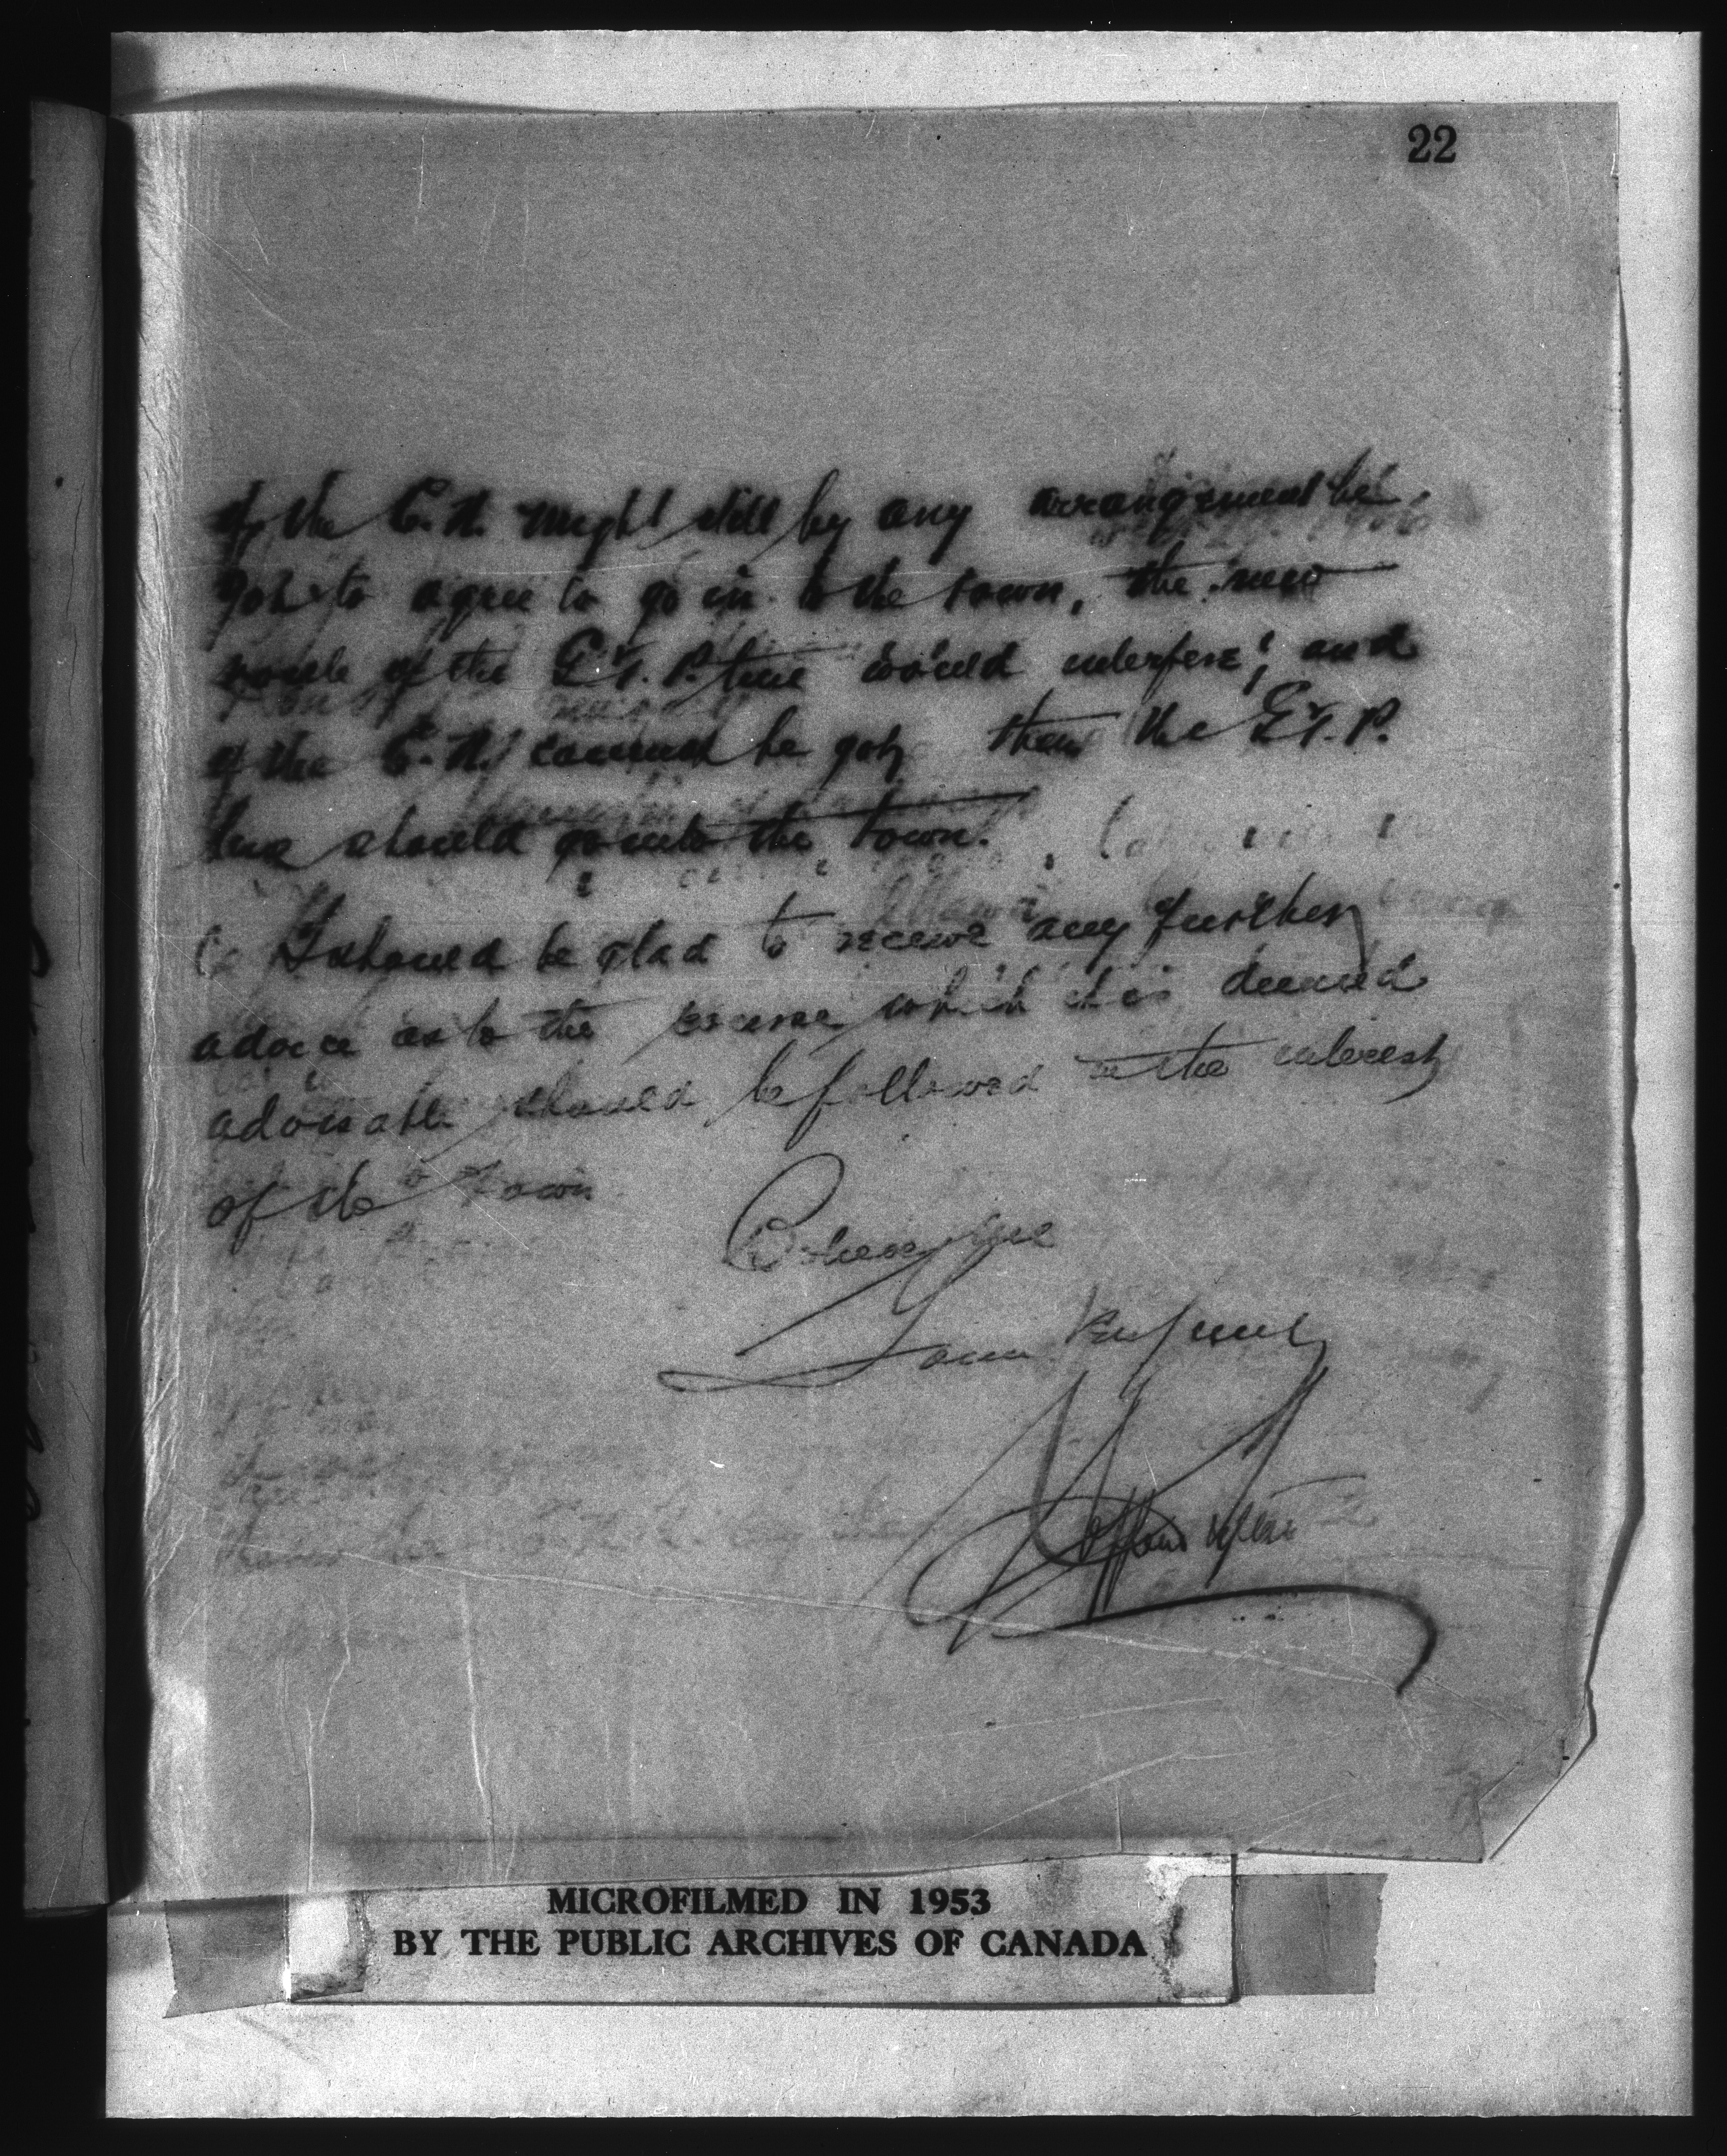 22
if the C.N. might still by any arrangement be
got to agree to go in to the town, the new
route of the G.T.P. line would interfere; and
if the C.N. cannot be got then the G.T.P.
line should go into the town.
I should be glad to receive any further
advice as to the course which it is deemed
advisable should be followed in the interest
of the Town
Believe me
Yours
MICROFILMED IN 1953
BY THE PUBLIC ARCHIVES OF CANADA